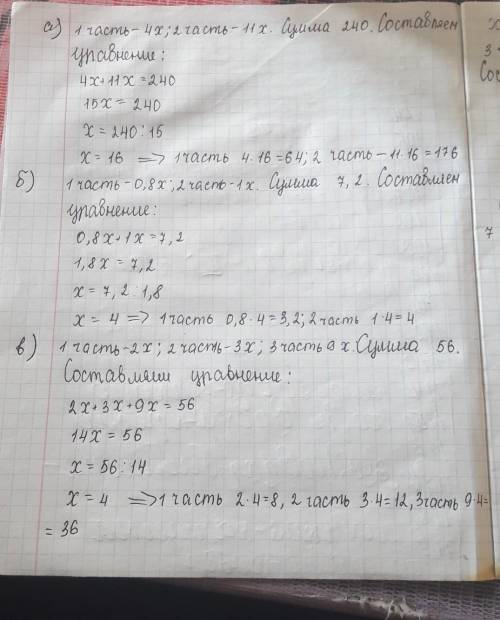 а) 1 часть - 4x; 2 часть - 11x. Сумма 240. Составляем
уравнение:
4x+11x=240
15x = 240
x = 240:15
x = 16 => 1 часть 4·16=64; 2 часть - 11·16=176
б) 1 часть - 0,8x; 2 часть - 1x. Сумма 7,2. Составляем
уравнение:
0,8x+1x=7,2
1,8x = 7,2
x = 7,2:1,8
x = 4 => 1 часть 0,8·4=3,2; 2 часть 1·4=4
в) 1 часть - 2x; 2 часть - 3x; 3 часть 9x. Сумма 56.
Составляем уравнение:
2x+3x+9x = 56
14x = 56
x = 56:14
x = 4 => 1 часть 2·4=8, 2 часть 3·4=12, 3 часть 9·4=
= 36